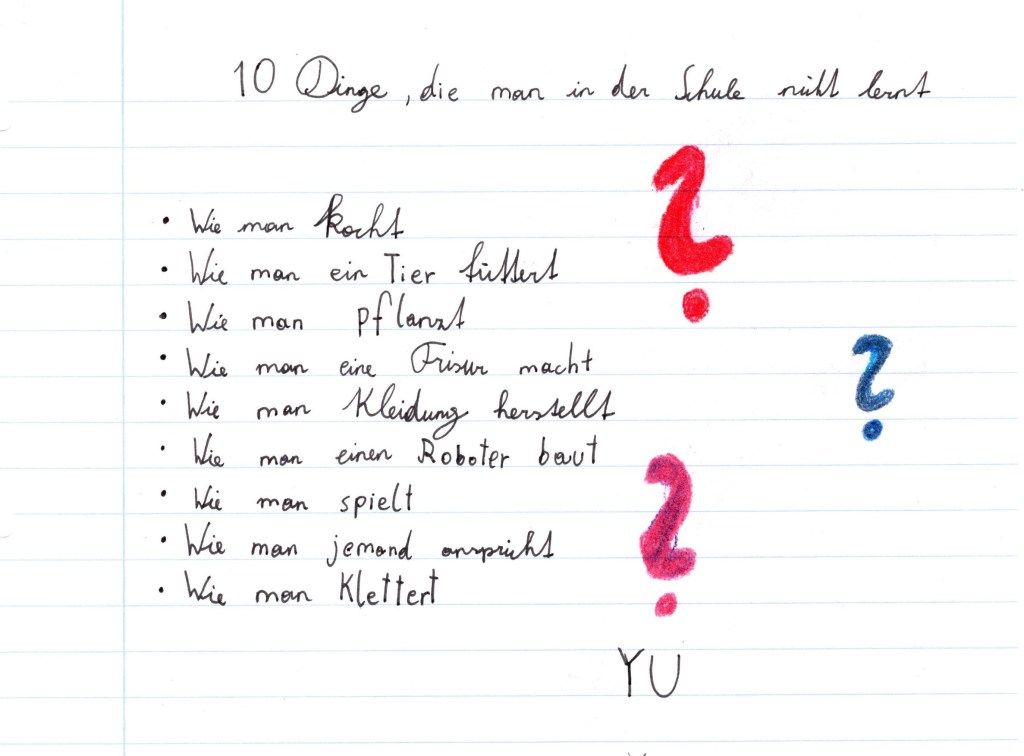 10 Dinge, die man in der Schule nicht lernt
• Wie man kocht
• Wie man ein Tier füttert
• Wie man pflanzt
• Wie man eine Frisur macht
• Wie man Kleidung herstellt
• Wie man einen Roboter baut
• Wie man spielt
• Wie man jemand anspricht
• Wie man Klettert
?
?
?
YU